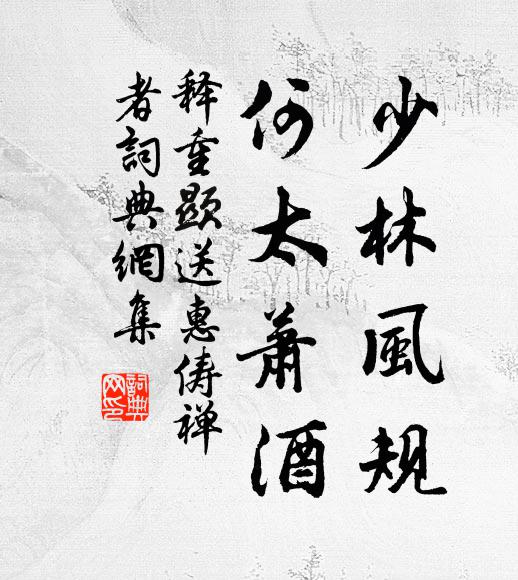 少林風規
何太蕭酒
释重顯送惠俦禅
者詞典網集
詞典
网印